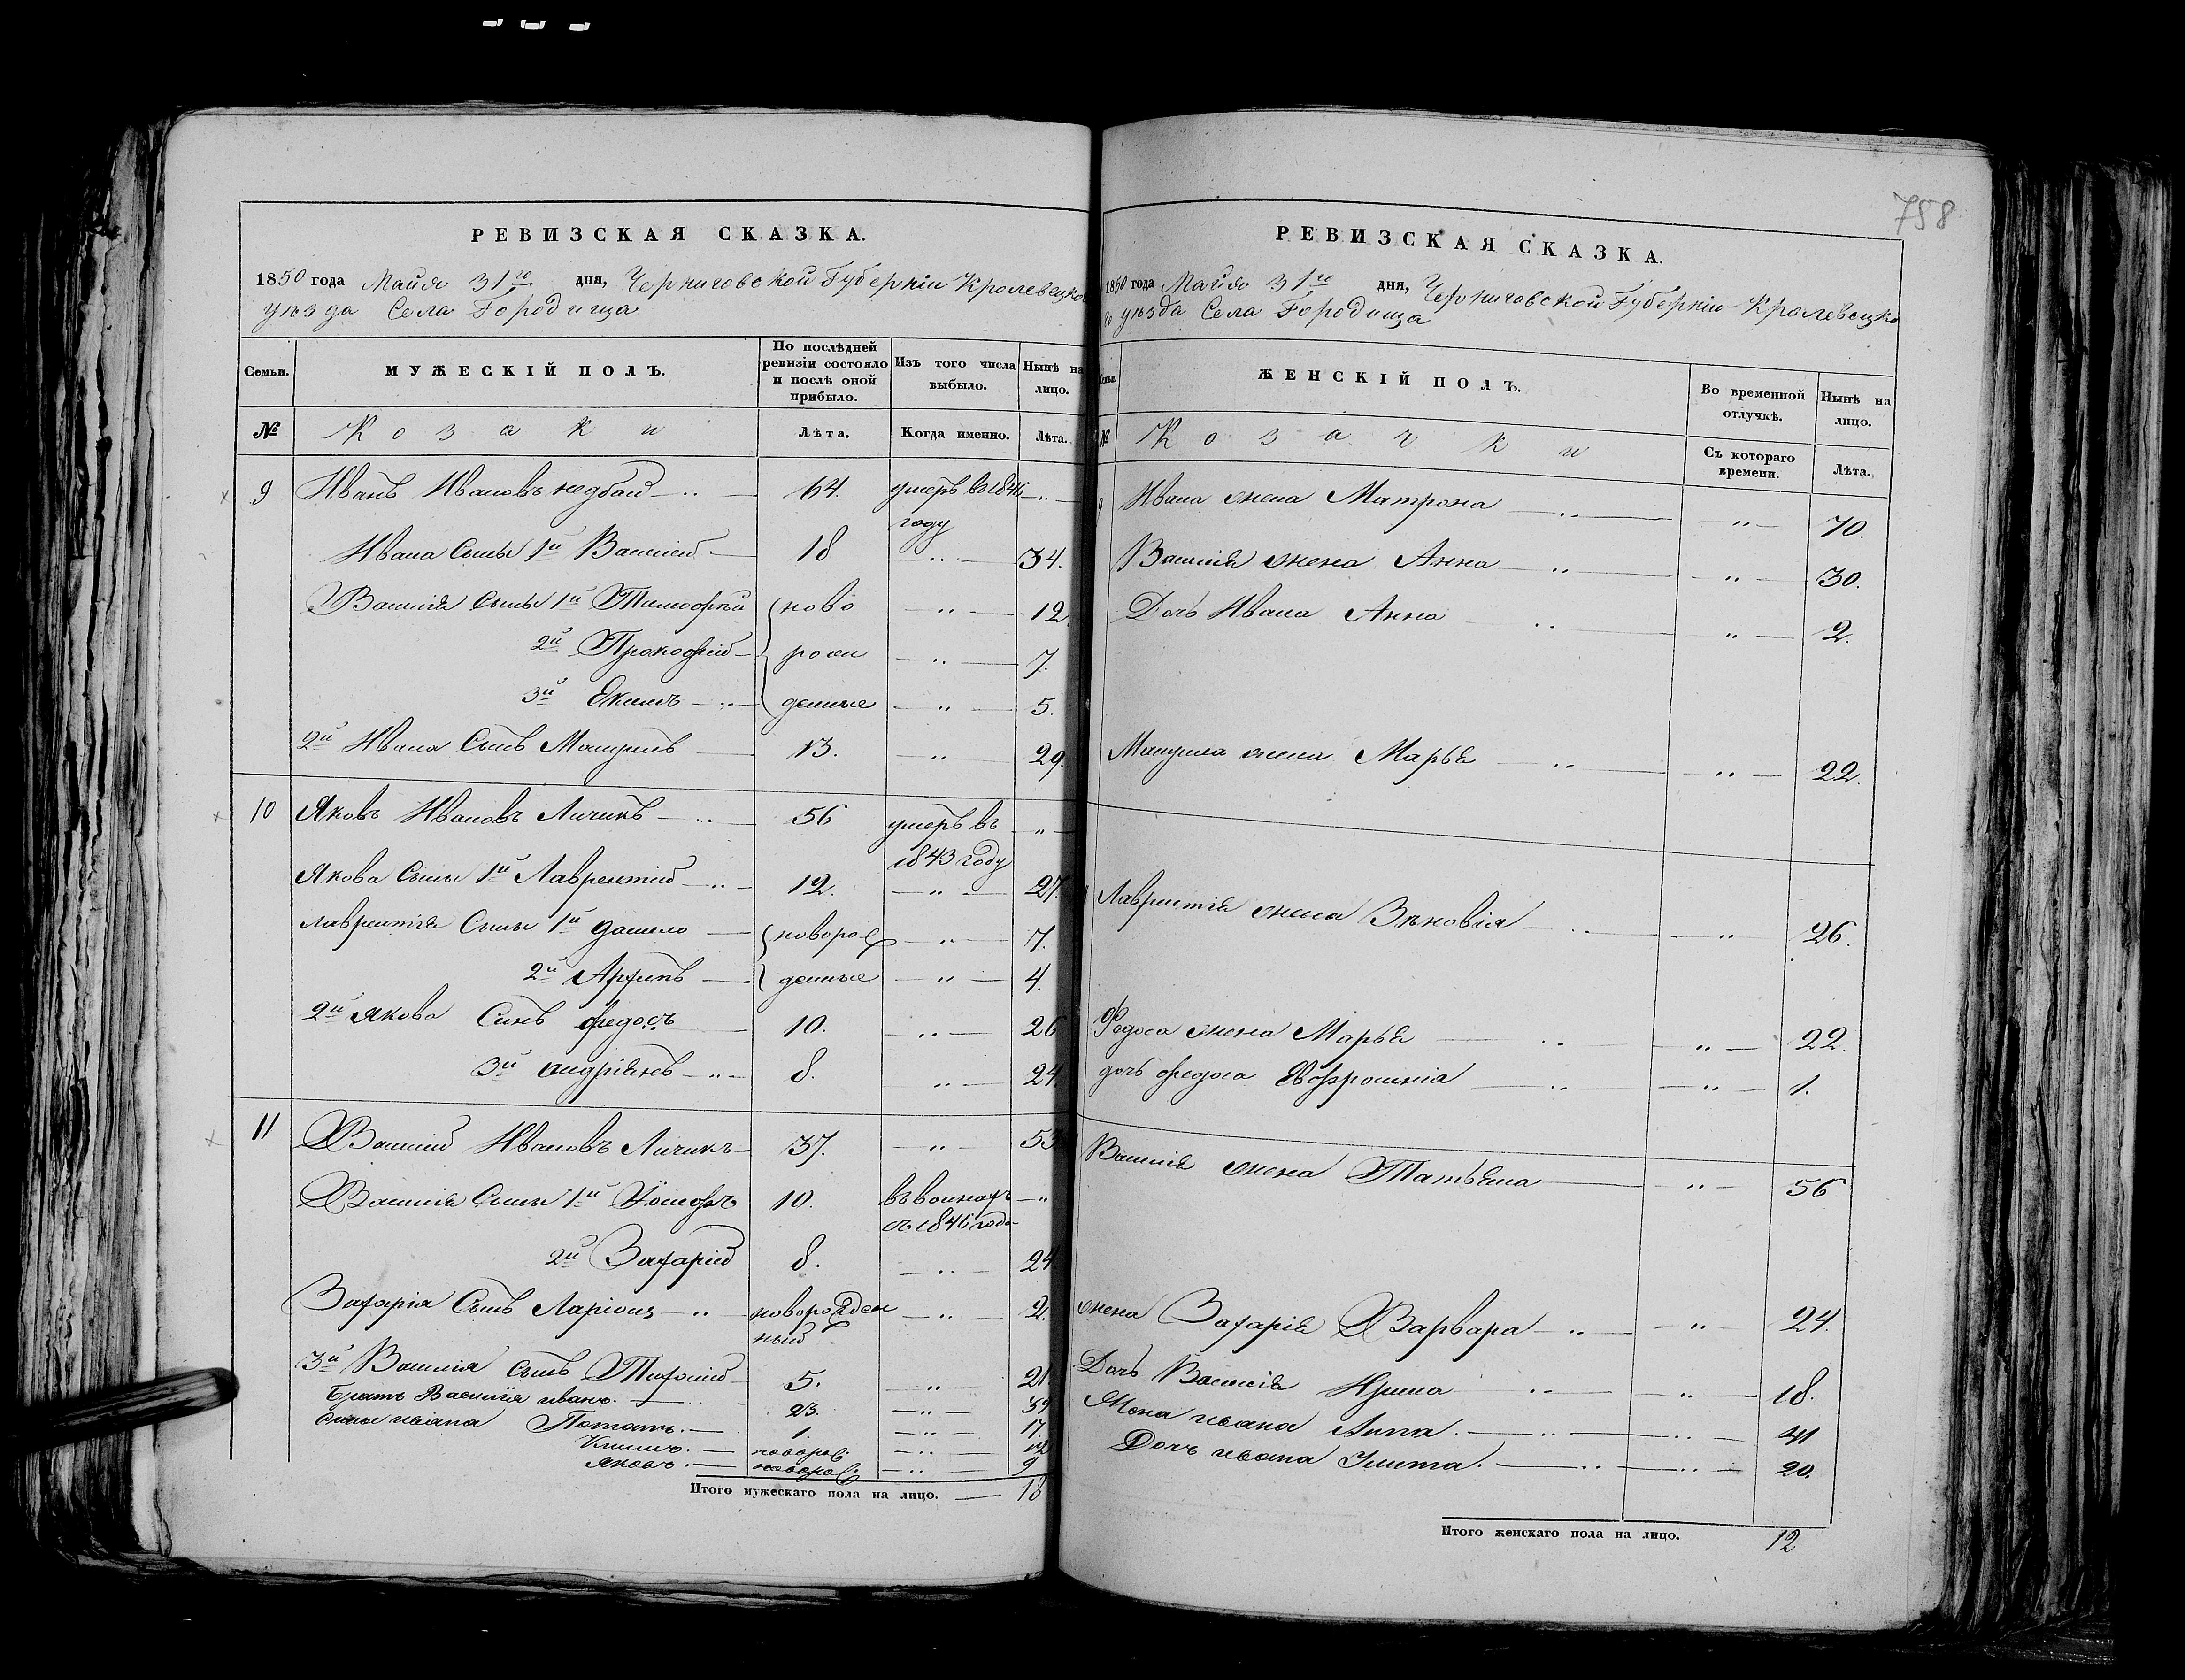 РЕВИЗСКАЯ СКАЗКА.
1850 года Майя 31го дня, Черниговской Губерніи Кролевецко
уѣзда Села Городища
Семьи.
МУЖЕСКІЙ ПОЛЪ.
По послѣдней ревизіи состояло и послѣ оной прибыло.
Изъ того числа выбыло.
Нынѣ на лицо.
№
Козаки
Лѣта.
Когда именно.
Лѣта.
9 Иванъ Ивановъ недбай 64. умеръ в 1846 году
Ивана Сыны 1й Василій 18 34.
Василія Сыны 1й Тимофей ново 12.
2й Прокофій рож 7.
3й Екимъ денные 5.
2й Ивана Сынъ Мануилъ 13. 29.
10 Яковъ Ивановъ Личикъ 56 умеръ въ 1843 году
Якова Сыны 1й Лаврентій 12. 27.
Лаврентія Сыны 1й данило новорож 7.
2й Архипъ денные 4.
2й Якова Синъ федосъ 10. 26
3й андріянъ 8. 24
11 Василій Ивановъ Личикъ 37. 53
Василія Сыны 1й 10. въ воинахъ съ 1846 года
2й Захарій 8. 24
Захарія Сынъ Ларіонъ новорожден ный 2.
3й Василія сынъ 5. 21
Братъ Василія иванъ. 23. 39
сыны ивана Потапъ. 1. 17.
Климъ. новорож. 12
Яковъ. новорож. 9
Итого мужескаго пола на лицо. 18
758
РЕВИЗСКАЯ СКАЗКА.
1850 года Майя 31го дня, Черниговской Губерніи Кролевецко
го уѣзда Села Городища
Семьи.
ЖЕНСКІЙ ПОЛЪ.
Во временной отлучкѣ.
Нынѣ на лицо.
№
Козачки
Съ котораго времени.
Лѣта.
9 Ивана жена Матрона 70.
Василія жена Анна 30.
Дочь Ивана Анна 2.
Мануила жена Марья 22.
Лаврентія жена Зѣновія 26.
Федоса жена Марья 22.
дочь федоса Евфросинія 1.
Василія жена Татьяна 56
жена Захарія Варвара 24.
Дочь Василія Ирина 18.
Жена ивана Анна. 41
Дочь ивана Улита. 20.
Итого женскаго пола на лицо. 12